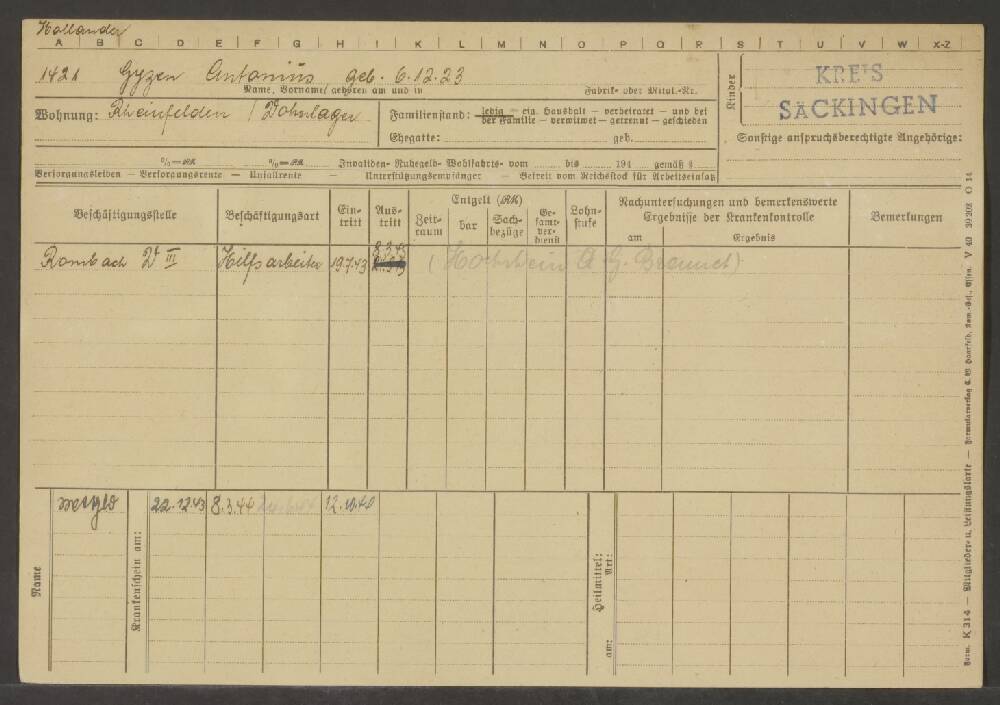 Holländer
A B C D E F G H I K L M N O P Q R S T U V W X-Z
1421 Gyzen Antonius geb. 6.12.23
Name, Vorname/ geboren am und in
Fabrik- oder Mitgl.-Nr.
Kinder
KREIS
SÄCKINGEN
Wohnung: Rheinfelden / Wohnlager
Familienstand: ledig — eig. Haushalt — verheiratet — und bei
der Familie — verwitwet — getrennt — geschieden
Ehegatte: geb.
Sonstige anspruchsberechtigte Angehörige:
%=RM %=RM Invaliden- Ruhegeld- Wohlfahrts- vom bis 194 gemäß §
Versorgungsleiden — Versorgungsrente — Unfallrente — Unterstützungsempfänger — Befreit vom Reichsstock für Arbeitseinsatz
Beschäftigungsstelle
Beschäftigungsart
Ein-
tritt
Aus-
tritt
Entgelt (RM)
Zeit-
raum
bar
Sach-
bezüge
Ge-
samt-
ver-
dienst
Lohn-
stufe
Nachuntersuchungen und bemerkenswerte
Ergebnisse der Krankenkontrolle
am
Ergebnis
Bemerkungen
8.3.45
Rombach W III Hilfsarbeiter 19.7.43 (Hochrhein A.G. Brennet)
Name
Krankenschein am:
22.12.43 8.3.44 12.10.40
Heilmittel:
Art:
am:
Form. K 314 — Mitglieder- u. Leistungskarte — Formularverlag C. W. Haarfeld, Kom.-Ges., Essen. V 40 39 202 O 14